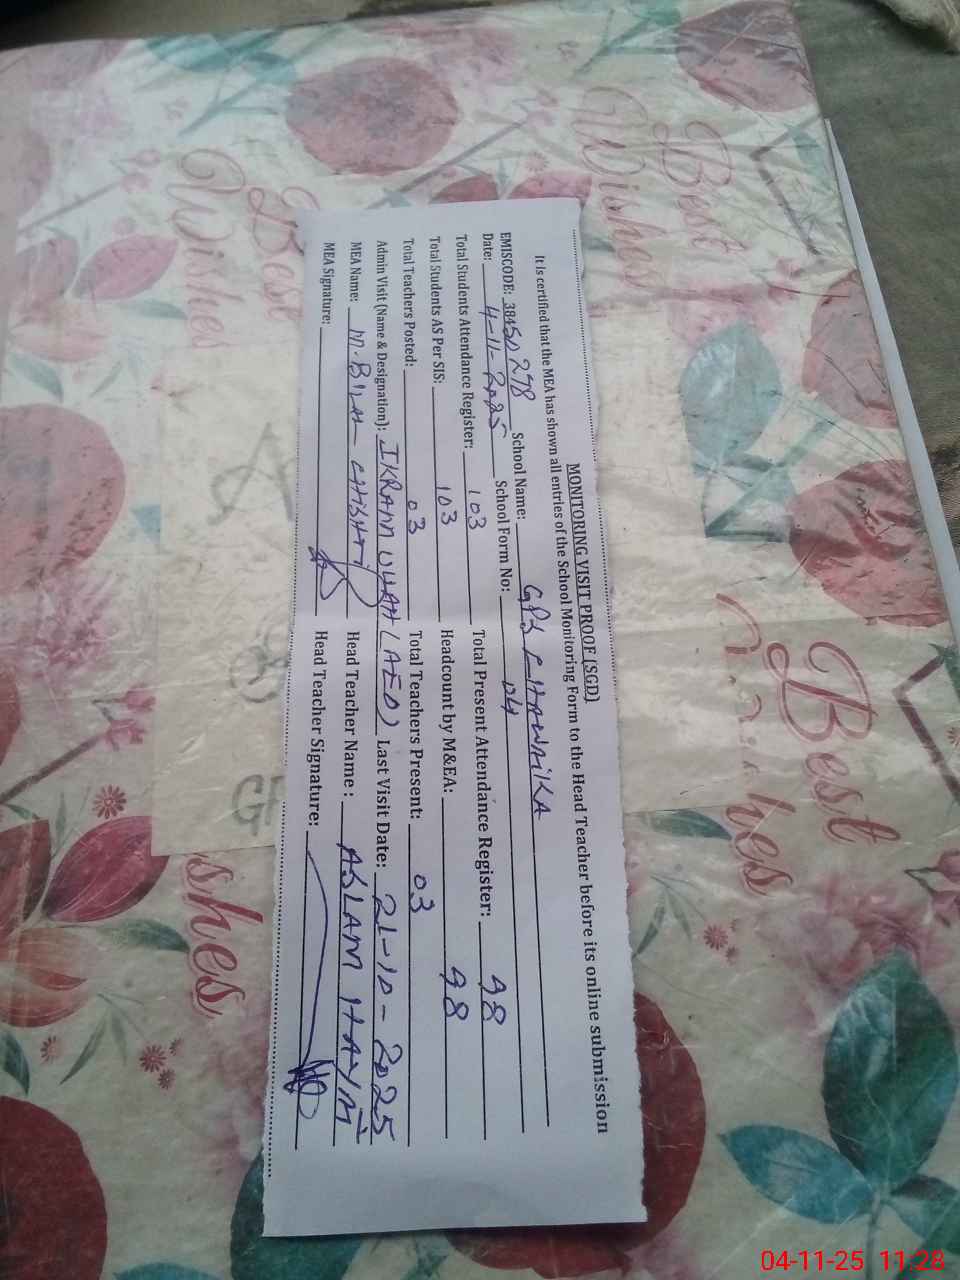 MONITORING VISIT PROOF (SGD)
It is certified that the MEA has shown all entries of the School Monitoring Form to the Head Teacher before its online submission
EMISCODE: 38450278 School Name: GPS CHAWAIKA
Date: 4-11-2025 School Form No: 04
Total Students Attendance Register: 103 Total Present Attendance Register: 98
Total Students AS Per SIS: 103 Headcount by M&EA: 98
Total Teachers Posted: 03 Total Teachers Present: 03
Admin Visit (Name & Designation): IKRAM ULLAH (AEO) Last Visit Date: 21-10-2025
MEA Name: M. BILAL CHISHTI Head Teacher Name: ASLAM
MEA Signature: Head Teacher Signature:
Best
Wishes
Best
Wishes
Best
shes
shes
04-11-25 11:28